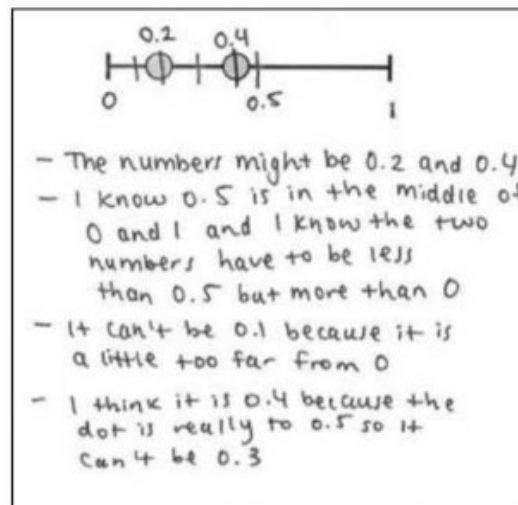 0.2 0.4
0 0.5 1
- The numbers might be 0.2 and 0.4
- I know 0.5 is in the middle of
0 and 1 and I know the two
numbers have to be less
than 0.5 but more than 0
- It can't be 0.1 because it is
a little too far from 0
- I think it is 0.4 because the
dot is really to 0.5 so it
can't be 0.3